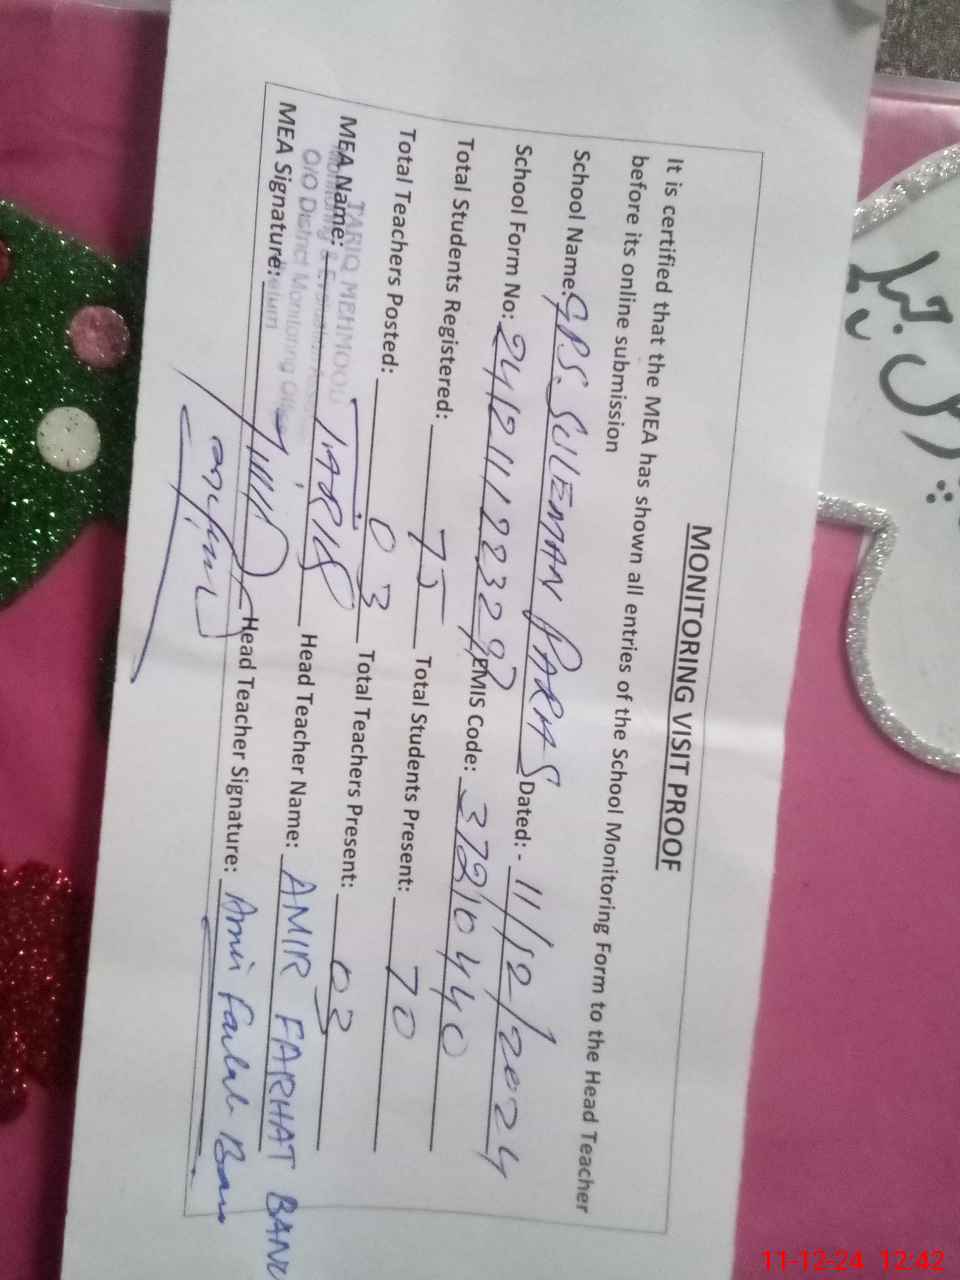 MONITORING VISIT PROOF
It is certified that the MEA has shown all entries of the School Monitoring Form to the Head Teacher
before its online submission
School Name: GPS. SULEMAN PARHS Dated: - 11/12/2024
School Form No: EMIS Code: 37210440
Total Students Registered: 75 Total Students Present: 70
Total Teachers Posted: 03 Total Teachers Present: 03
MEA Name: TARIQ Head Teacher Name: AMIR FARHAT BANO
TARIQ MEHMOOD
Monitoring & Evaluation
O/O District Monitoring Officer
MEA Signature: Head Teacher Signature: Amir Farhat Bano
11-12-24 12:42